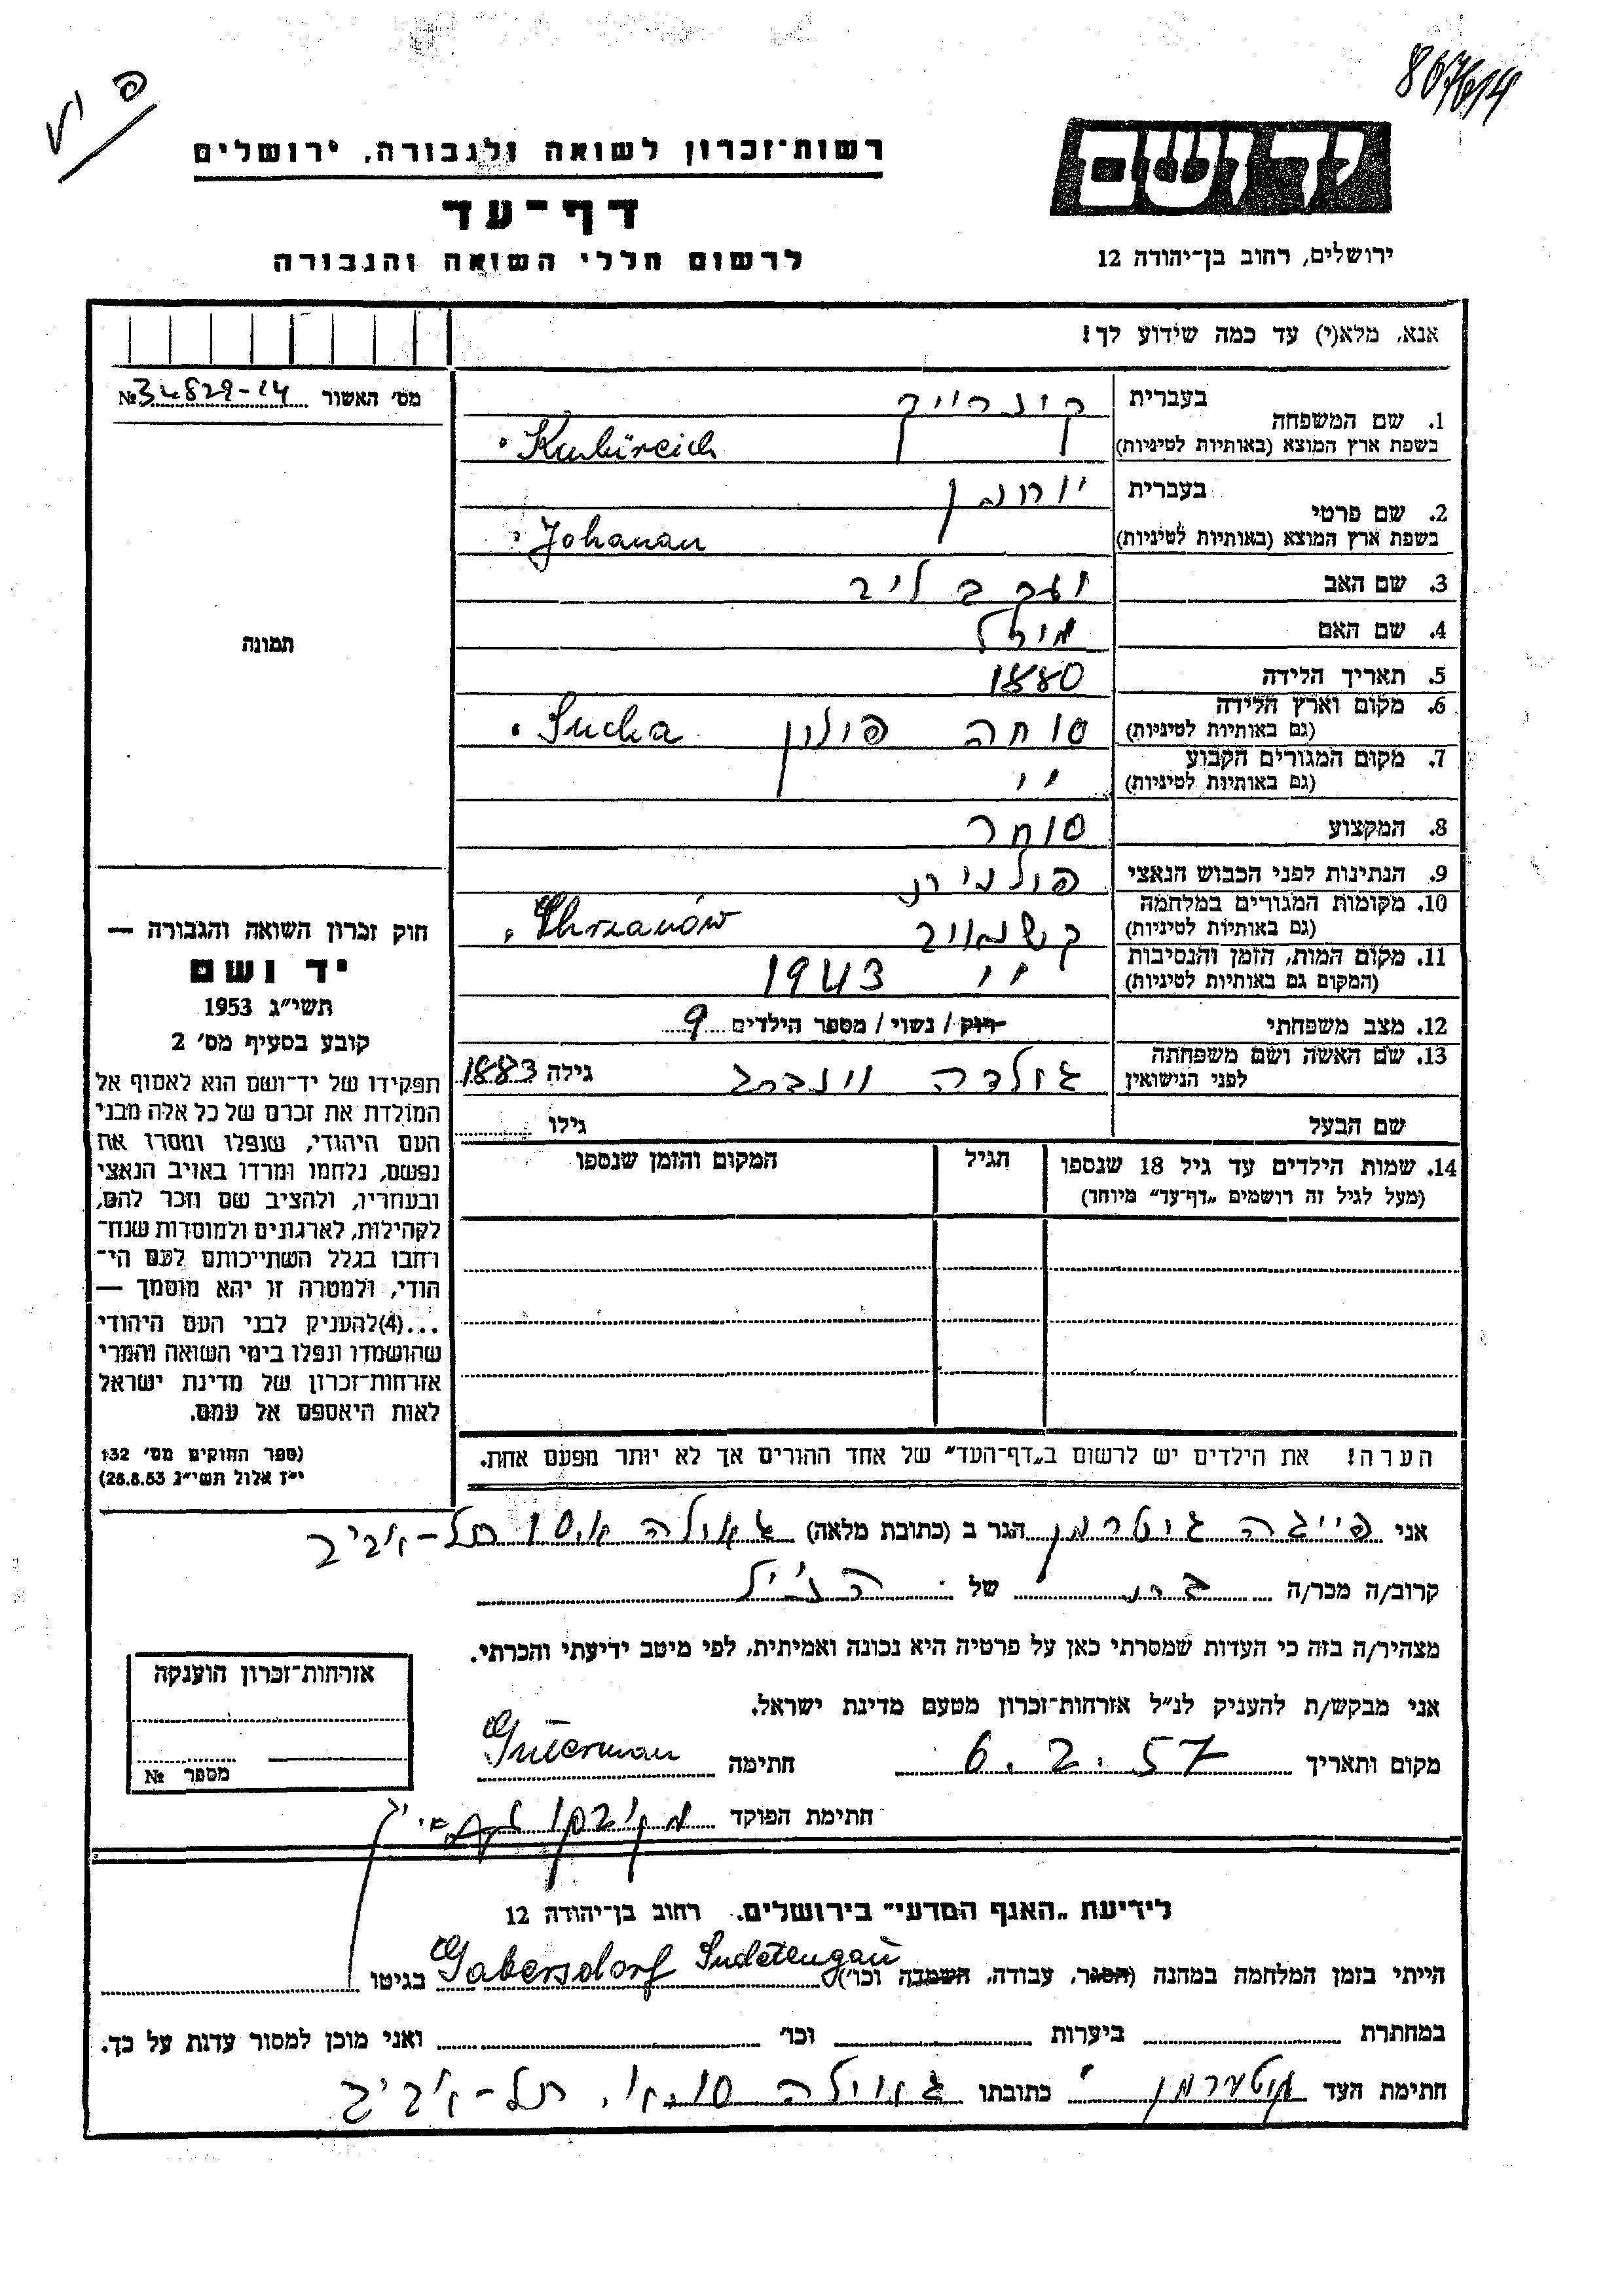 807614
יד ושם
ירושלים, רחוב בן־יהודה 12
רשות־זכרון לשואה ולגבורה, ירושלים
דף־עד
לרשום חללי השואה והגבורה
אנא, מלא(י) עד כמה שידוע לך!
מס׳ האשור №34829-14
1. שם המשפחה
בעברית
בשפת ארץ המוצא (באותיות לטיניות)
2. שם פרטי
בעברית יוחנן
בשפת ארץ המוצא (באותיות לטיניות) Johanan
3. שם האב יעקב ליב
4. שם האם
5. תאריך הלידה 1880
6. מקום וארץ הלידה
(גם באותיות לטיניות) סוחה פולין Sucha
7. מקום המגורים הקבוע
(גם באותיות לטיניות) ״
8. המקצוע סוחר
9. הנתינות לפני הכבוש הנאצי
10. מקומות המגורים במלחמה
(גם באותיות לטיניות) Chrzanów
11. מקום המות, הזמן והנסיבות
(המקום גם באותיות לטיניות) ״ 1943
12. מצב משפחתי רוק / נשוי / מספר הילדים 9
13. שם האשה ושם משפחתה
לפני הנישואין גולדה גילה 1883
שם הבעל גילו
14. שמות הילדים עד גיל 18 שנספו הגיל המקום והזמן שנספו
(מעל לגיל זה רושמים „דף־עד״ מיוחד)
הערה! את הילדים יש לרשום ב„דף־העד״ של אחד ההורים אך לא יותר מפעם אחת.
תמונה
חוק זכרון השואה והגבורה —
יד ושם
תשי״ג 1953
קובע בסעיף מס׳ 2
תפקידו של יד־ושם הוא לאסוף אל
המולדת את זכרם של כל אלה מבני
העם היהודי, שנפלו ומסרו את
נפשם, נלחמו ומרדו באויב הנאצי
ובעוזריו, ולהציב שם וזכר להם,
לקהילות, לארגונים ולמוסדות שנח־
רחבו בגלל השתייכותם לעם הי־
הודי, ולמטרה זו יהא מוסמך —
...(4)להעניק לבני העם היהודי
שהושמדו ונפלו בימי השואה והמרי
אזרחות־זכרון של מדינת ישראל
לאות היאספם אל עמם.
(ספר החוקים מס׳ 132
י״ז אלול תשי״ג 28.8.53)
אני פייגה גוטרמן הגר ב (כתובת מלאה) גאולה תל-אביב
קרוב/ה מכר/ה בת של הנ״ל
מצהיר/ה בזה כי העדות שמסרתי כאן על פרטיה היא נכונה ואמיתית, לפי מיטב ידיעתי והכרתי.
אני מבקש/ת להעניק לנ״ל אזרחות־זכרון מטעם מדינת ישראל.
מקום ותאריך 6.2.57 חתימה Guterman
חתימת הפוקד
אזרחות־זכרון הוענקה
מספר №
לידיעת „האגף המדעי״ בירושלים, רחוב בן־יהודה 12
הייתי בזמן המלחמה במחנה (הסגר, עבודה, השמדה וכו׳) Gabersdorf Sudetengau בגיטו
במחתרת ביערות וכו׳ ואני מוכן למסור עדות על כך.
חתימת העד גוטערמן כתובתו גאולה תל-אביב